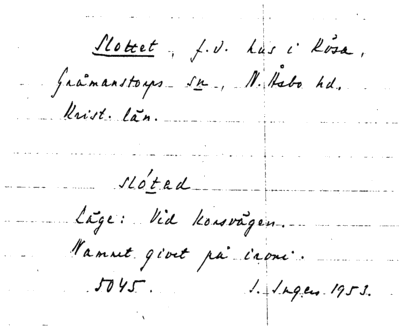 Slottet, f.d. hus i Kösa,
Gråmanstorps sn, N. Åsbo hd.
Krist. län.
slótad
Läge: Vid korsvägen.
Namnet givet på ironi.
5045. S. Ingers 1953.